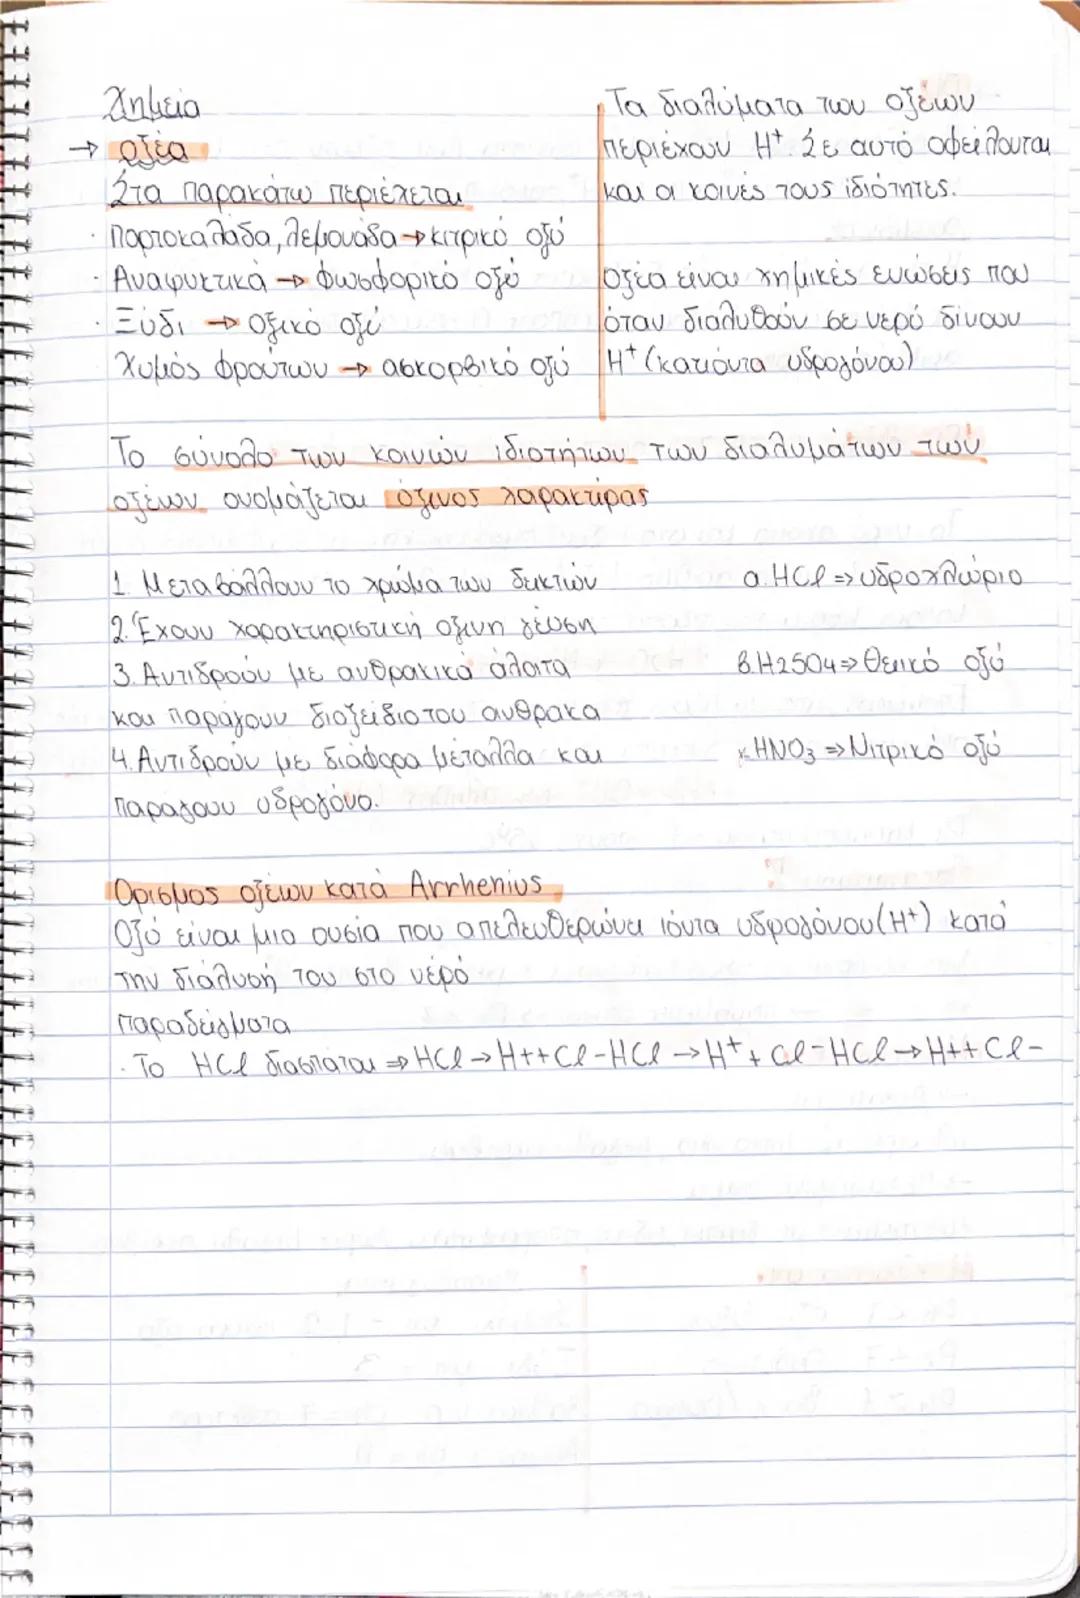 Χημεία
→ οξέα
Στα παρακάτω περιέχεται
· Πορτοκαλάδα, λεμονάδα → κιτρικό οξύ
· Αναψυκτικά → φωσφορικό οξύ
· Ξύδι → οξικό οξύ
· Χυμός φρούτων → ασκορβικό οξύ
Τα διαλύματα των οξέων
περιέχουν H⁺. Σε αυτό οφείλονται
και οι κοινές τους ιδιότητες.
Οξέα είναι χημικές ενώσεις που
όταν διαλυθούν σε νερό δίνουν
H⁺ (κατιόντα υδρογόνου)
Το σύνολο των κοινών ιδιοτήτων των διαλυμάτων των
οξέων ονομάζεται όξινος χαρακτήρας
1. Μεταβάλλουν το χρώμα των δεικτών
2. Έχουν χαρακτηριστική οξινη γεύση
3. Αντιδρούν με ανθρακικά άλατα
και παράγουν διοξείδιο του ανθρακα
4. Αντιδρούν με διάφορα μέταλλα και
παράγουν υδρογόνο.
α. HCl => υδροχλώριο
β. H2SO4 => Θειικό οξύ
γ. HNO3 => Νιτρικό οξύ
Ορισμος οξέων κατά Arrhenius
Οξύ είναι μια ουσία που απελευθερώνει ιόντα υδρογόνου (H+) κατά
την διάλυσή του στο νερό
Παραδείγματα
· Το HCl διασπάται => HCl → H++Cl-HCl → H⁺ + Cl⁻HCl → H++Cl-